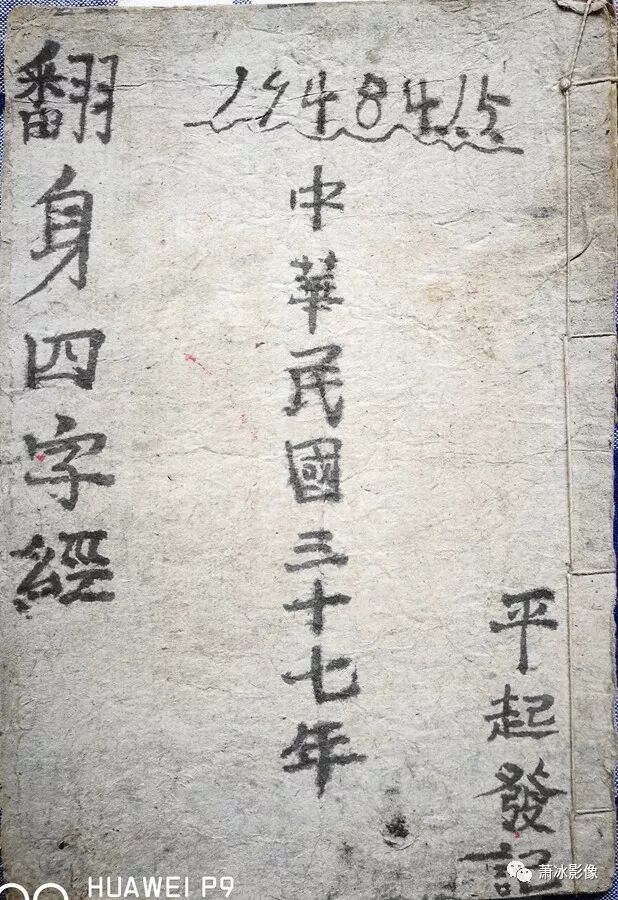 1948415
平起發記
中華民國三十七年
翻身四字經
HUAWEI P9
萧冰影像